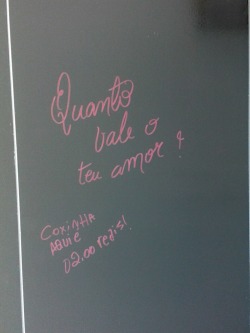 Quanto
vale o
teu amor?
COXINHA
AQUI É
02,00 reais!